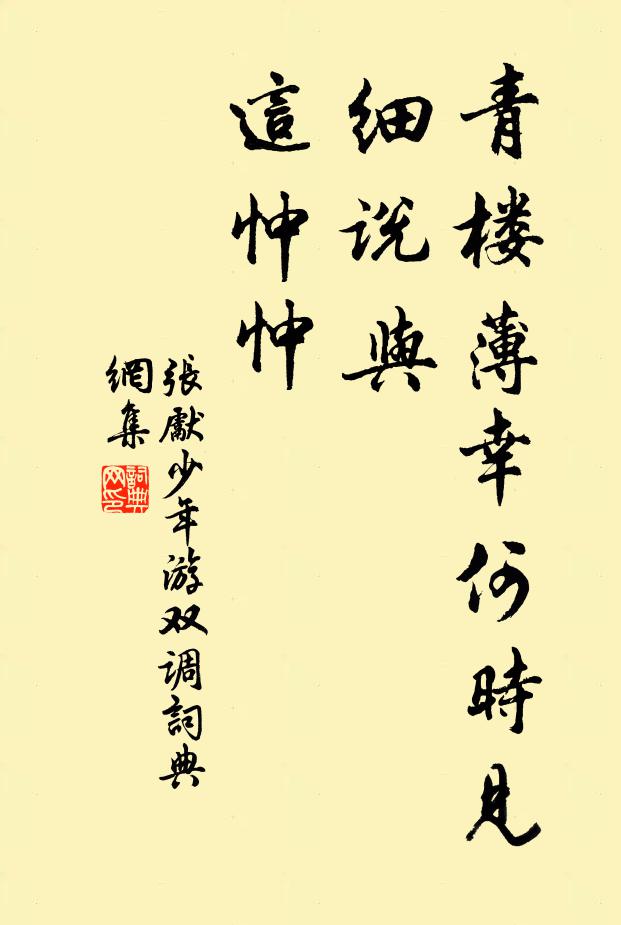 青楼薄幸何時見
細说與
這忡忡
張獻少年游双调詞典
網集
詞典
网印